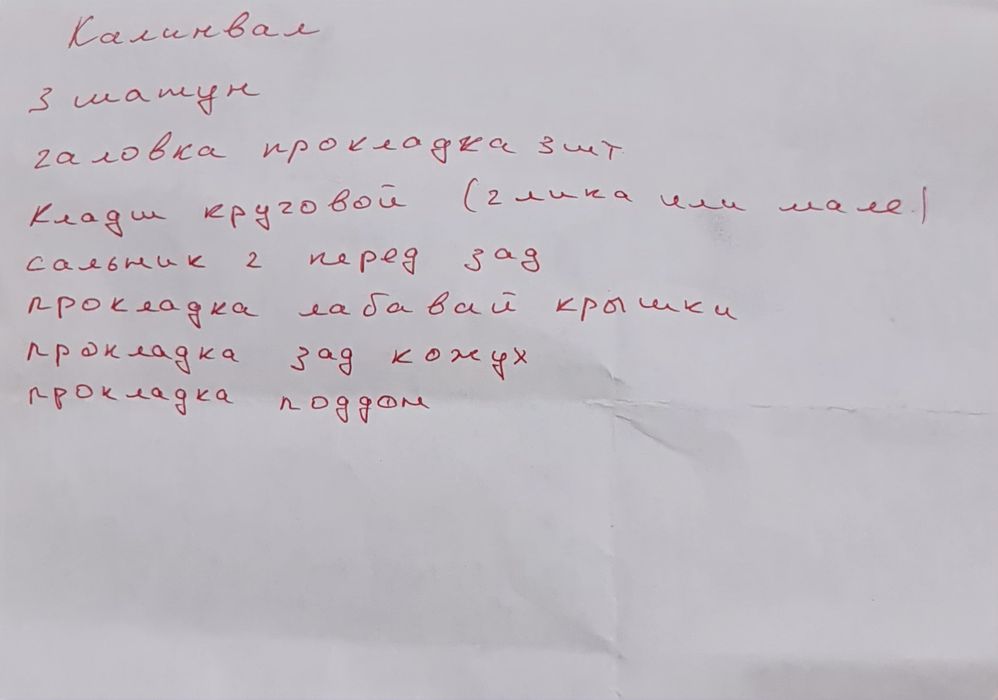 Калинвал
3 шатун
галовка прокладка 3шт.
Кладш круговой (глика или мале.)
сальник 2 перед зад
прокладка лабавай крышки
прокладка зад кожух
прокладка поддон